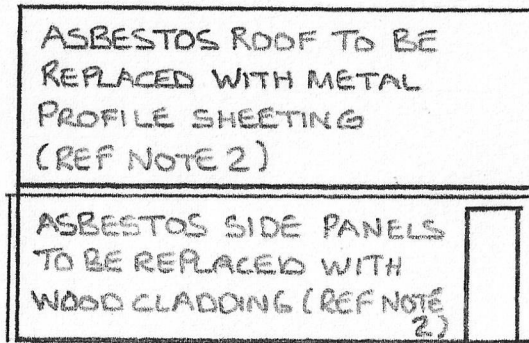 ASBESTOS ROOF TO BE
REPLACED WITH METAL
PROFILE SHEETING
(REF NOTE 2)
ASBESTOS SIDE PANELS
TO BE REPLACED WITH
WOOD CLADDING (REF NOTE
2)